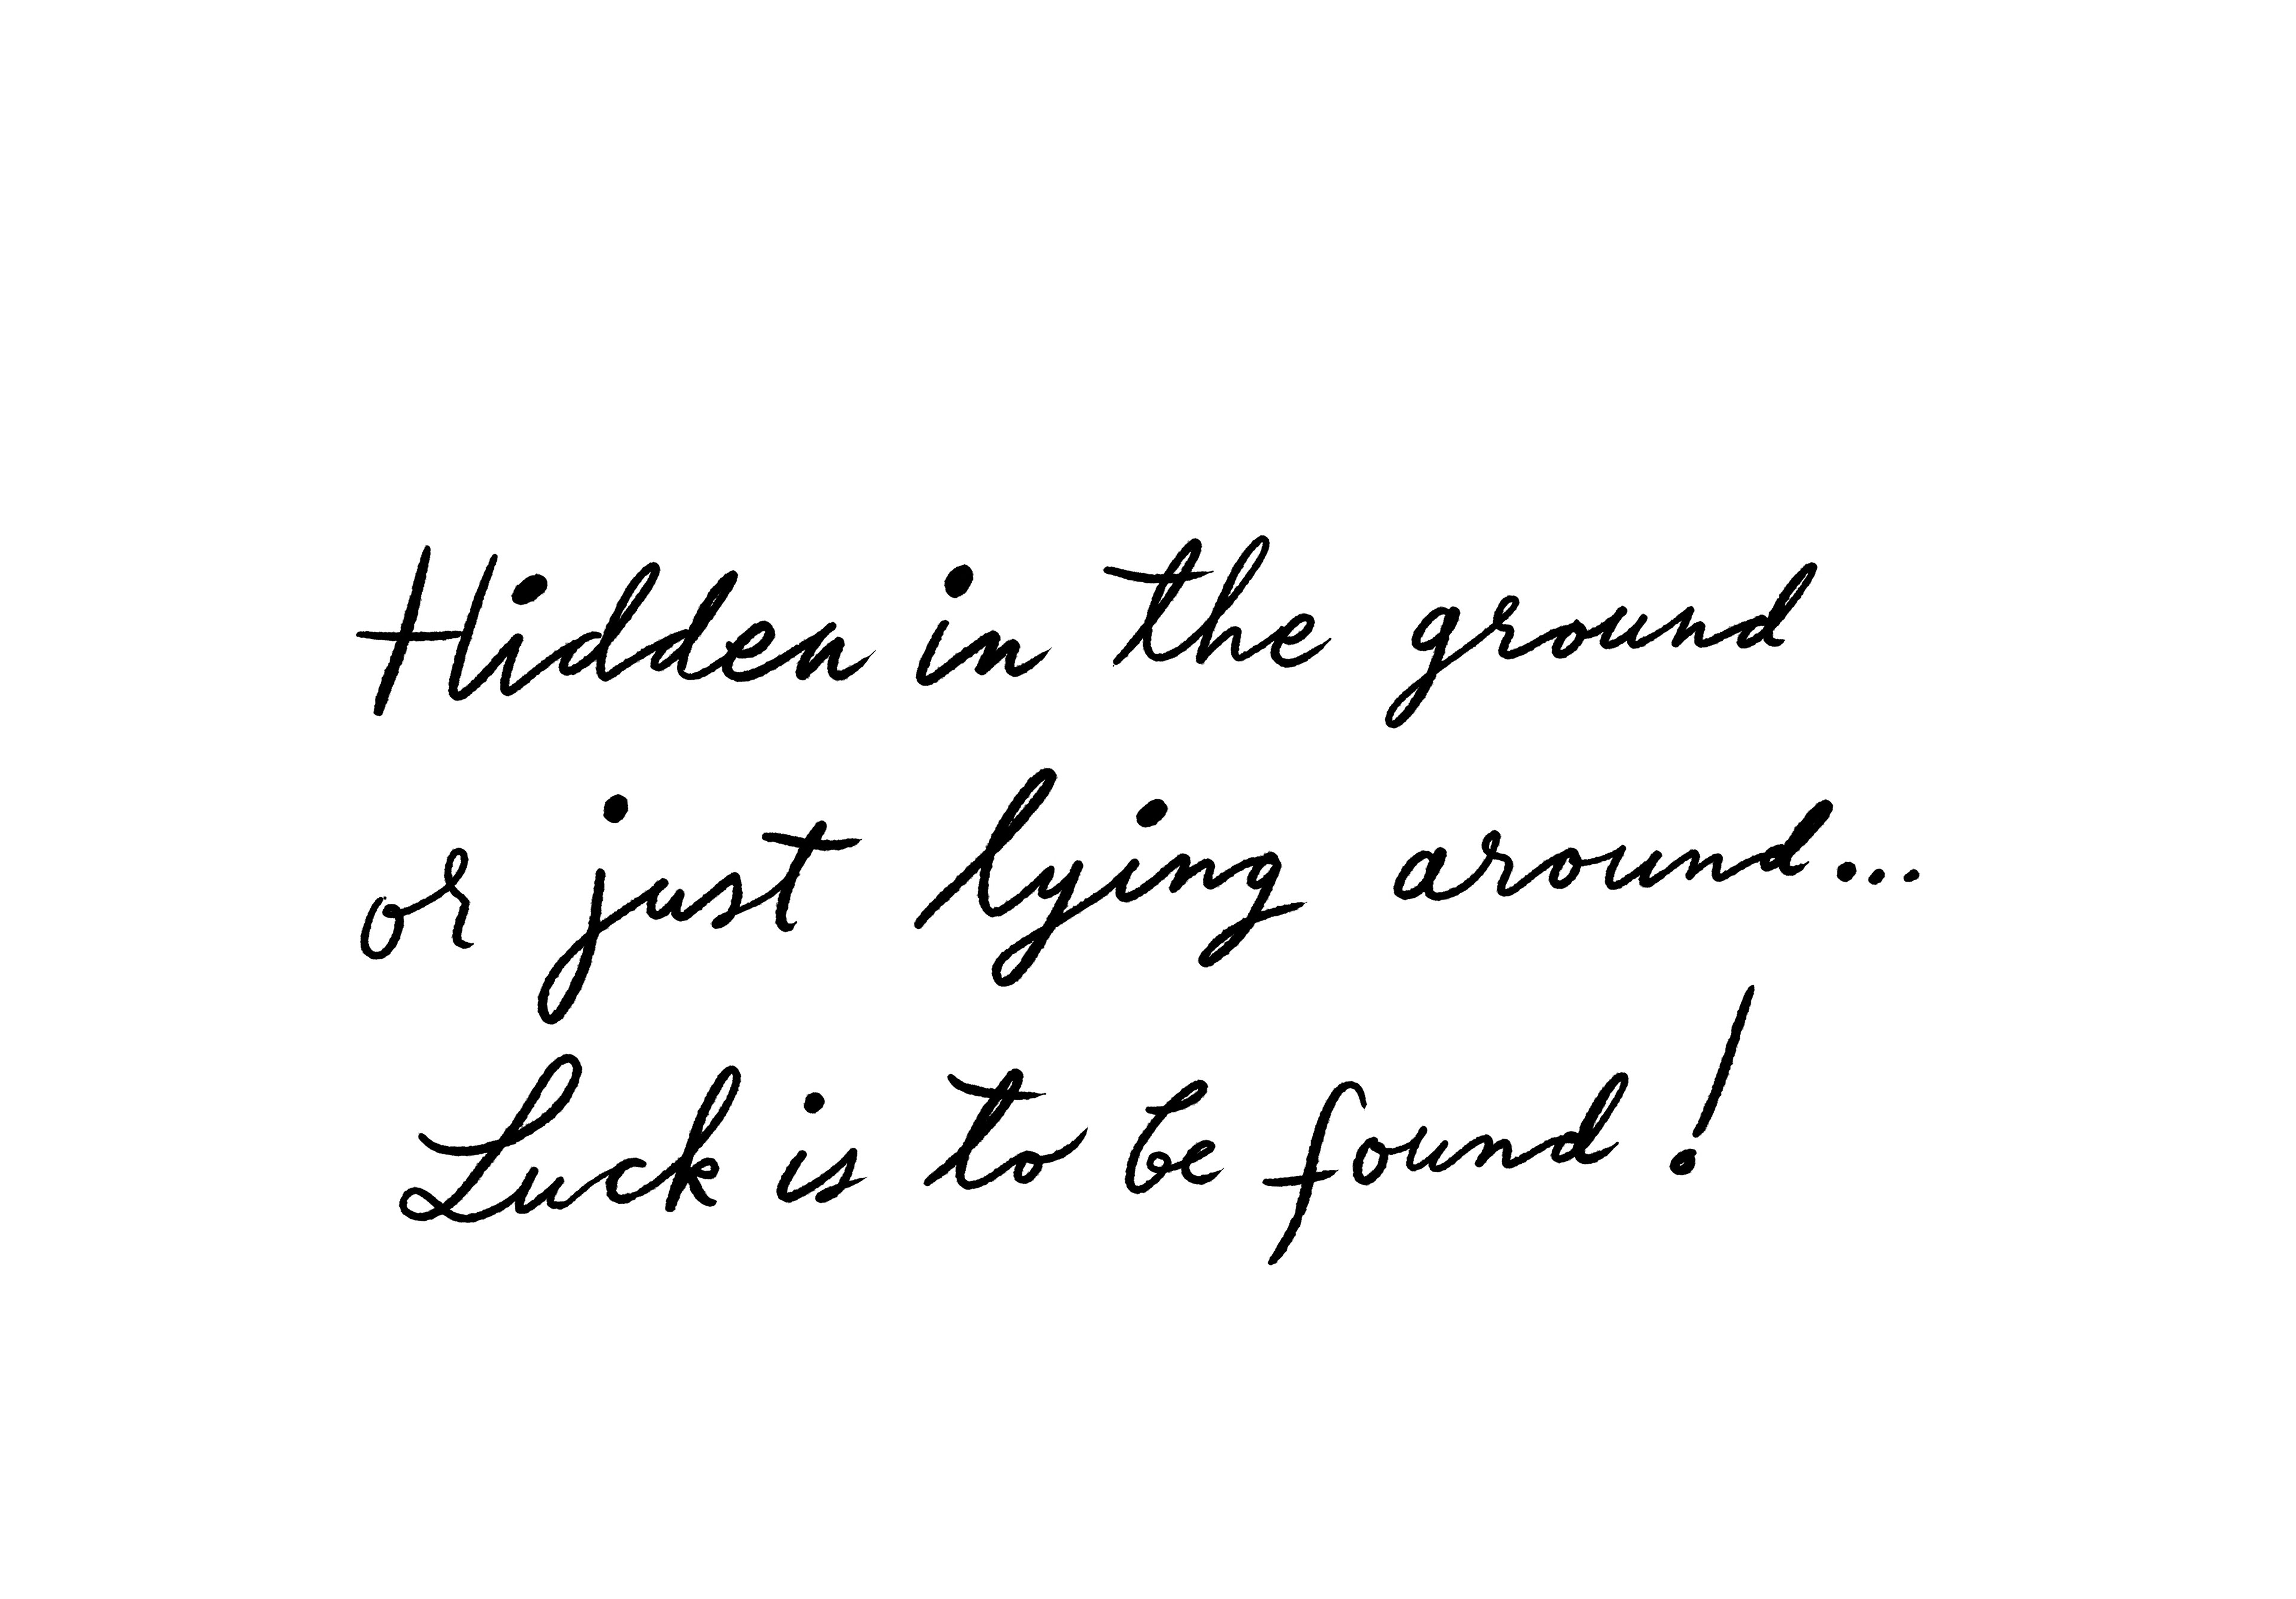 Hidden in the ground
or just lying around...
Luck is to be found!